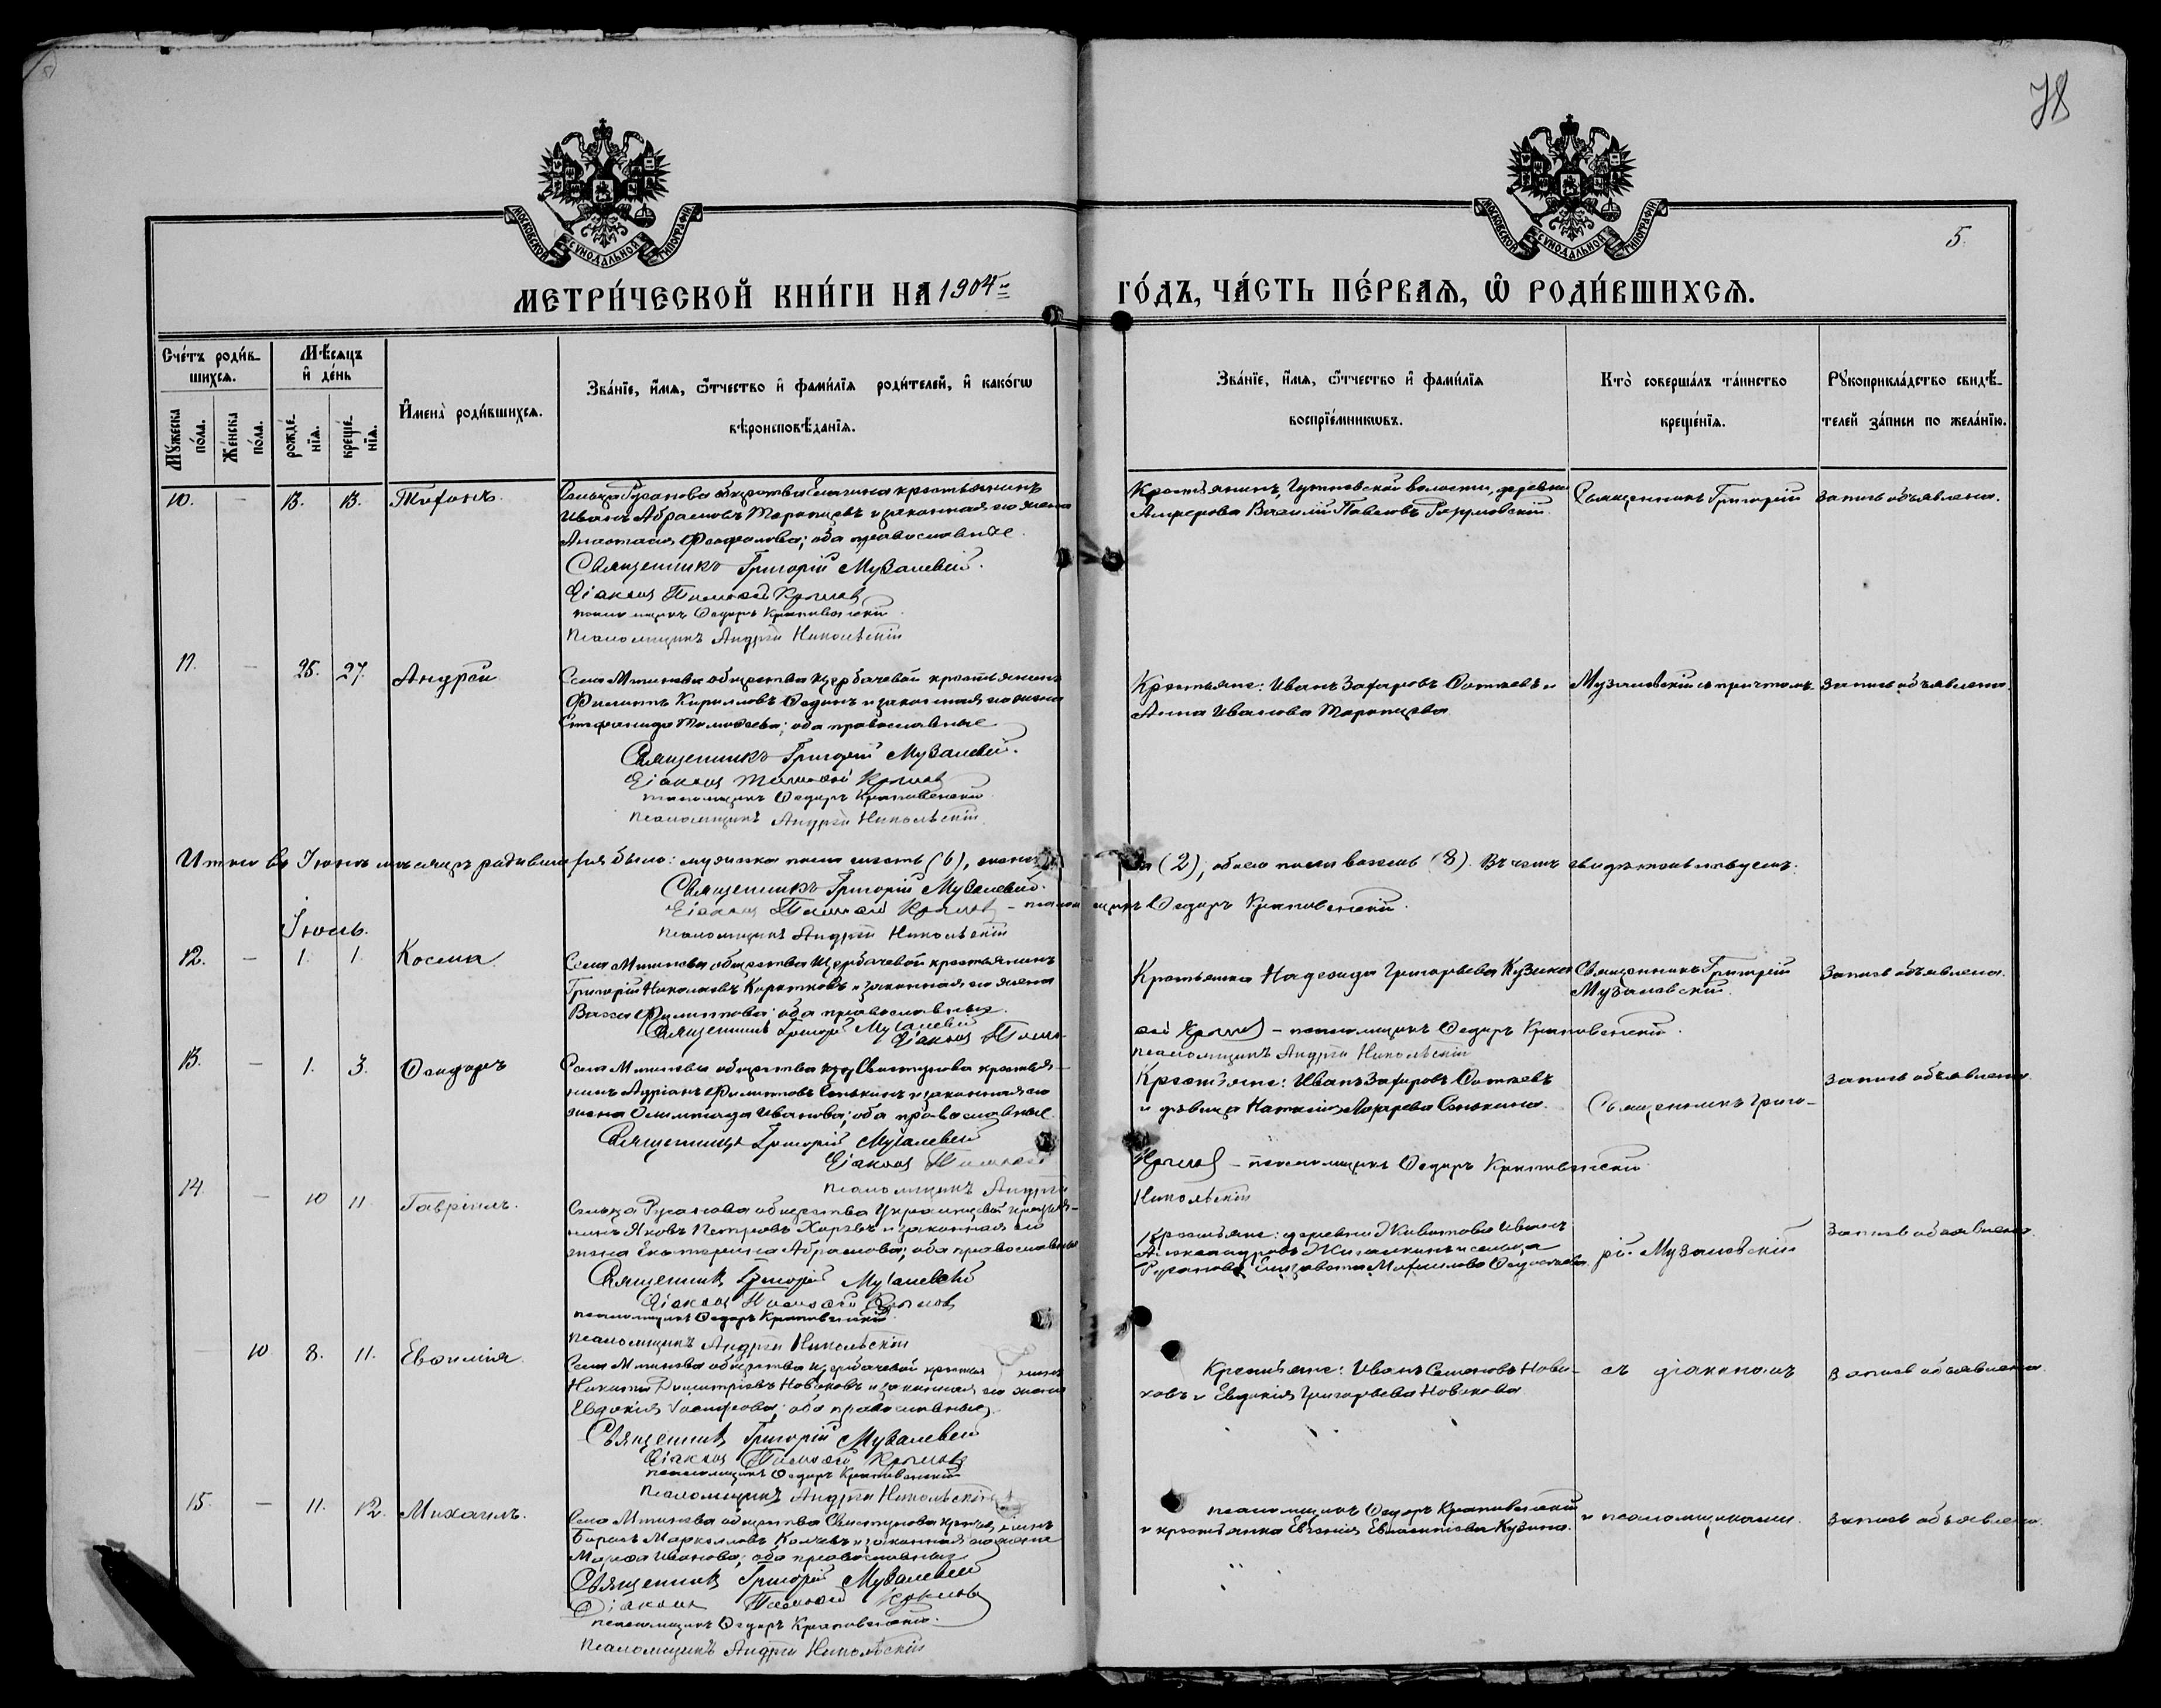 78
5.
МОСКОВСКОЙ СѴНОДАЛЬНОЙ ТИПОГРАФІИ
МОСКОВСКОЙ СѴНОДАЛЬНОЙ ТИПОГРАФІИ
МЕТРИ́ЧЕСКОЙ КНИ́ГИ НА 1904й ГО́ДЪ, ЧА́СТЬ ПЕ́РВАѦ, Ѡ РОДИ́ВШИХСѦ.
Сче́тъ роди́в-
шихсѧ.
Мꙋ́жеска по́ла.
Же́нска по́ла.
Мѣ́сѧцъ и де́нь
рожде́нїѧ.
креще́нїѧ.
Имена̀ роди́вшихсѧ.
Зва́нїе, и́мѧ, ѻ́тчество и фами́лїѧ роди́телей, и како́гѡ
вѣроисповѣ́данїѧ.
Зва́нїе, и́мѧ, ѻ́тчество и фами́лїѧ
воспрїе́мникѡвъ.
Кто̀ соверша́лъ та́инство
креще́нїѧ.
Рꙋкоприкла́дство свидѣ́-
телей за́писи по жела́нїю.
10. — 13. 13. Тихонъ.
Сельца Русанова общества Елагина крестьянинъ
Иванъ Абрамовъ Торопцевъ и законная его жена
Анастасія; оба православные.
Священникъ Григорій Музалевскій.
Діаконъ Тимофей Крылов
псаломщикъ Ѳедоръ Крапивенскій
псаломщикъ Андрей Никольскій
Крестьянинъ, волости, деревни
Алферова Василій Павловъ Разумовскій.
Священникъ Григорій
Запись объявлена.
11. — 25. 27. Андрей
Села Митнева общества Щербачевой крестьянинъ
Филиппъ Кирилловъ и законная его жена
Стефанида Тимоѳеева; оба православные
Священникъ Григорій Музалевскій.
Діаконъ Тимофей Крылов
псаломщикъ Ѳедоръ Крапивенскій
псаломщикъ Андрей Никольскій.
Крестьяне: Иванъ Захаровъ и
Анна Иванова Торопцева
Музалевскій съ причтомъ.
Запись объявлена.
Итого въ Іюнѣ мѣсяцѣ родившихся было: мужска пола шесть (6), женска (2), обоего пола восемь (8). Въ чемъ свидѣтельствуемъ:
Священникъ Григорій Музалевскій.
Діаконъ Тимофей Крылов – псаломщикъ Ѳедоръ Крапивенскій.
псаломщикъ Андрей Никольскій
Іюль.
12. — 1. 1. Косма
Села Митнева общества Щербачевой крестьянинъ
Григорій Николаевъ Коротковъ и законная его жена
Васса Филиппова; оба православные.
Священникъ Григорій Музалевскій
Діаконъ Тимо-
фей Крылов – псаломщикъ Ѳедоръ Крапивенскій.
псаломщикъ Андрей Никольскій
Крестьянка Надежда Григорьева
Священникъ Григорій
Музалевскій.
Запись объявлена.
13. — 1. 3. Ѳеодоръ
Села Митнева общества Свистунова крестья-
нинъ Адріанъ Филипповъ Сенькинъ и законная его
жена Олимпіада Иванова; оба православные.
Священникъ Григорій Музалевскій
Діаконъ Тимофей
Крылов – псаломщикъ Ѳедоръ Крапивенскій
псаломщикъ Андрей
Никольскій
Крестьяне: Иванъ Захаровъ
и дѣвица Лазарева Сенькина.
Священникъ Григо-
Запись объявлена
14. — 10 11. Гавріилъ.
Сельца Русанова общества крестья-
нинъ Яковъ Петровъ и законная его
жена Екатерина Абрамова; оба православные
Священникъ Григорій Музалевскій
Діаконъ Тимофей Крылов
псаломщикъ Ѳедоръ Крапивенскій
псаломщикъ Андрей Никольскій
Крестьяне: деревни Иванъ
Александровъ и сельца
Русанова Елизавета
рій Музалевскій
Запись объявлена
10 8. 11. Евѳимія.
Села Митнева общества Щербачевой крестьянинъ
Никита Димитріевъ Новиковъ и законная его жена
Евдокія; оба православные.
Священникъ Григорій Музалевскій
Діаконъ Тимофей Крылов
псаломщикъ Ѳедоръ Крапивенскій
псаломщикъ Андрей Никольскій
Крестьяне: Иванъ Семеновъ Нови-
ковъ и Евдокія Григорьева Новикова
съ діакономъ
Запись объявлена.
15. — 11. 12. Михаилъ.
Села Митнева общества Свистунова крестьянинъ
Борисъ и законная его жена
Марѳа Иванова; оба православные
Священникъ Григорій Музалевскій
Діаконъ Тимофей Крылов
псаломщикъ Ѳедоръ Крапивенскій.
псаломщикъ Андрей Никольскій
псаломщикъ Ѳедоръ Крапивенскій
и крестьянка Евгенія
и псаломщиками.
Запись объявлена.